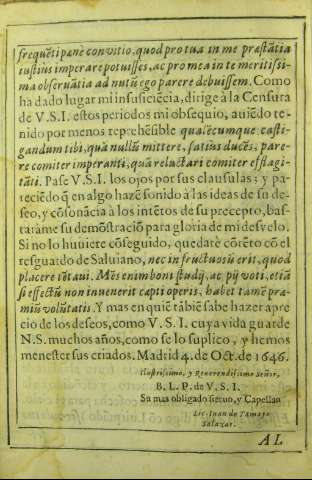 frequẽti pane convitio, quod pro tua in me præstãtia
iustius imperare potuisses, ac pro mea in te meritissi-
ma observãtia ad nutũ ego parere debuissem. Como
ha dado lugar mi insuficiẽcia, dirige à la Censura
de V.S.I. estos periodos mi obsequio, auiẽdo te-
nido por menos reprehẽsible qualẽcumque casti-
gandum tibi, quã nullũ mittere, satius ducẽs; pare-
re comiter imperanti, quã reluctari comiter efflagi-
tãti. Pase V.S.I. los ojos por sus clausulas; y pa-
reciẽdo q̃ en algo hazẽ sonido à las ideas de su de-
seo, y cõsonãcia à los intẽtos de su precepto, bas-
taràme su demostraciõ para gloria de mi desvelo.
Si no lo huuiere cõseguido, quedarè cõtẽto cõ el
resguardo de Saluiano, nec in fructuosũ erit, quod
placere tẽtaui. Mẽs enim boni studij, ac pij voti, etiã
si effectũ non invenerit capti operis, habet tamẽ præ-
miũ volũtatis. Y mas en quiẽ tãbiẽ sabe hazer apre
cio de los deseos, como V.S.I. cuya vida guarde
N.S. muchos años, como se lo suplico, y hemos
menester sus criados. Madrid 4. de Oct. de 1646.
Ilustrissimo, y Reuerendissimo Señor,
B. L. P. de V. S. I.
Su mas obligado sieruo, y Capellan
Lic. Iuan de Tamayo
Salazar.
AL